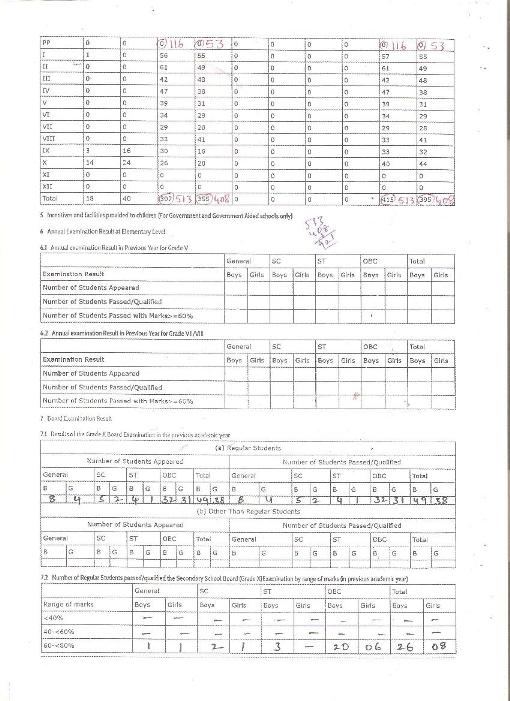 PP 0 0 (0) 116 (0) 53 0 0 0 0 (0) 116 (0) 53
I 1 0 56 55 0 0 0 0 57 55
II 0 0 61 49 0 0 0 0 61 49
III 0 0 42 48 0 0 0 0 42 48
IV 0 0 47 38 0 0 0 0 47 38
V 0 0 39 31 0 0 0 0 39 31
VI 0 0 34 29 0 0 0 0 34 29
VII 0 0 29 28 0 0 0 0 29 28
VIII 0 0 33 41 0 0 0 0 33 41
IX 3 16 30 16 0 0 0 0 33 32
X 14 24 26 20 0 0 0 0 40 44
XI 0 0 0 0 0 0 0 0 0 0
XII 0 0 0 0 0 0 0 0 0 0
Total 18 40 513 355 408 0 0 0 0 513 395 408
5 Incentives and facilities provided to children (For Government and Government Aided schools only)
513
408
921
6 Annual Examination Result at Elementary Level
6.1 Annual examination Result in Previous Year for Grade V
General SC ST OBC Total
Examination Result Boys Girls Boys Girls Boys Girls Boys Girls Boys Girls
Number of Students Appeared
Number of Students Passed/Qualified
Number of Students Passed with Marks>=60%
6.2 Annual examination Result in Previous Year for VII/VIII
General SC ST OBC Total
Examination Result Boys Girls Boys Girls Boys Girls Boys Girls Boys Girls
Number of Students Appeared
Number of Students Passed/Qualified
Number of Students Passed with Marks>=60%
7 Board Examination Result
7.1 Results of the Grade X Board Examination in the previous academic year
(a) Regular Students
Number of Students Appeared Number of Students Passed/Qualified
General SC ST OBC Total General SC ST OBC Total
B G B G B G B G B G B G B G B G B G B G
8 4 5 2 4 1 32 31 49 38 8 4 5 2 4 1 32 31 49 38
(b) Other Than Regular Students
Number of Students Appeared Number of Students Passed/Qualified
General SC ST OBC Total General SC ST OBC Total
B G B G B G B G B G B G B G B G B G B G
7.2 Number of Regular Students passed/qualified the Secondary School Board (Grade X) Examination by range of marks (in previous academic year)
General SC ST OBC Total
Range of marks Boys Girls Boys Girls Boys Girls Boys Girls Boys Girls
<40% — — — — — — — — — —
40-<60% — — — — — — — — — —
60-<80% 1 1 2 1 3 — 20 06 26 08